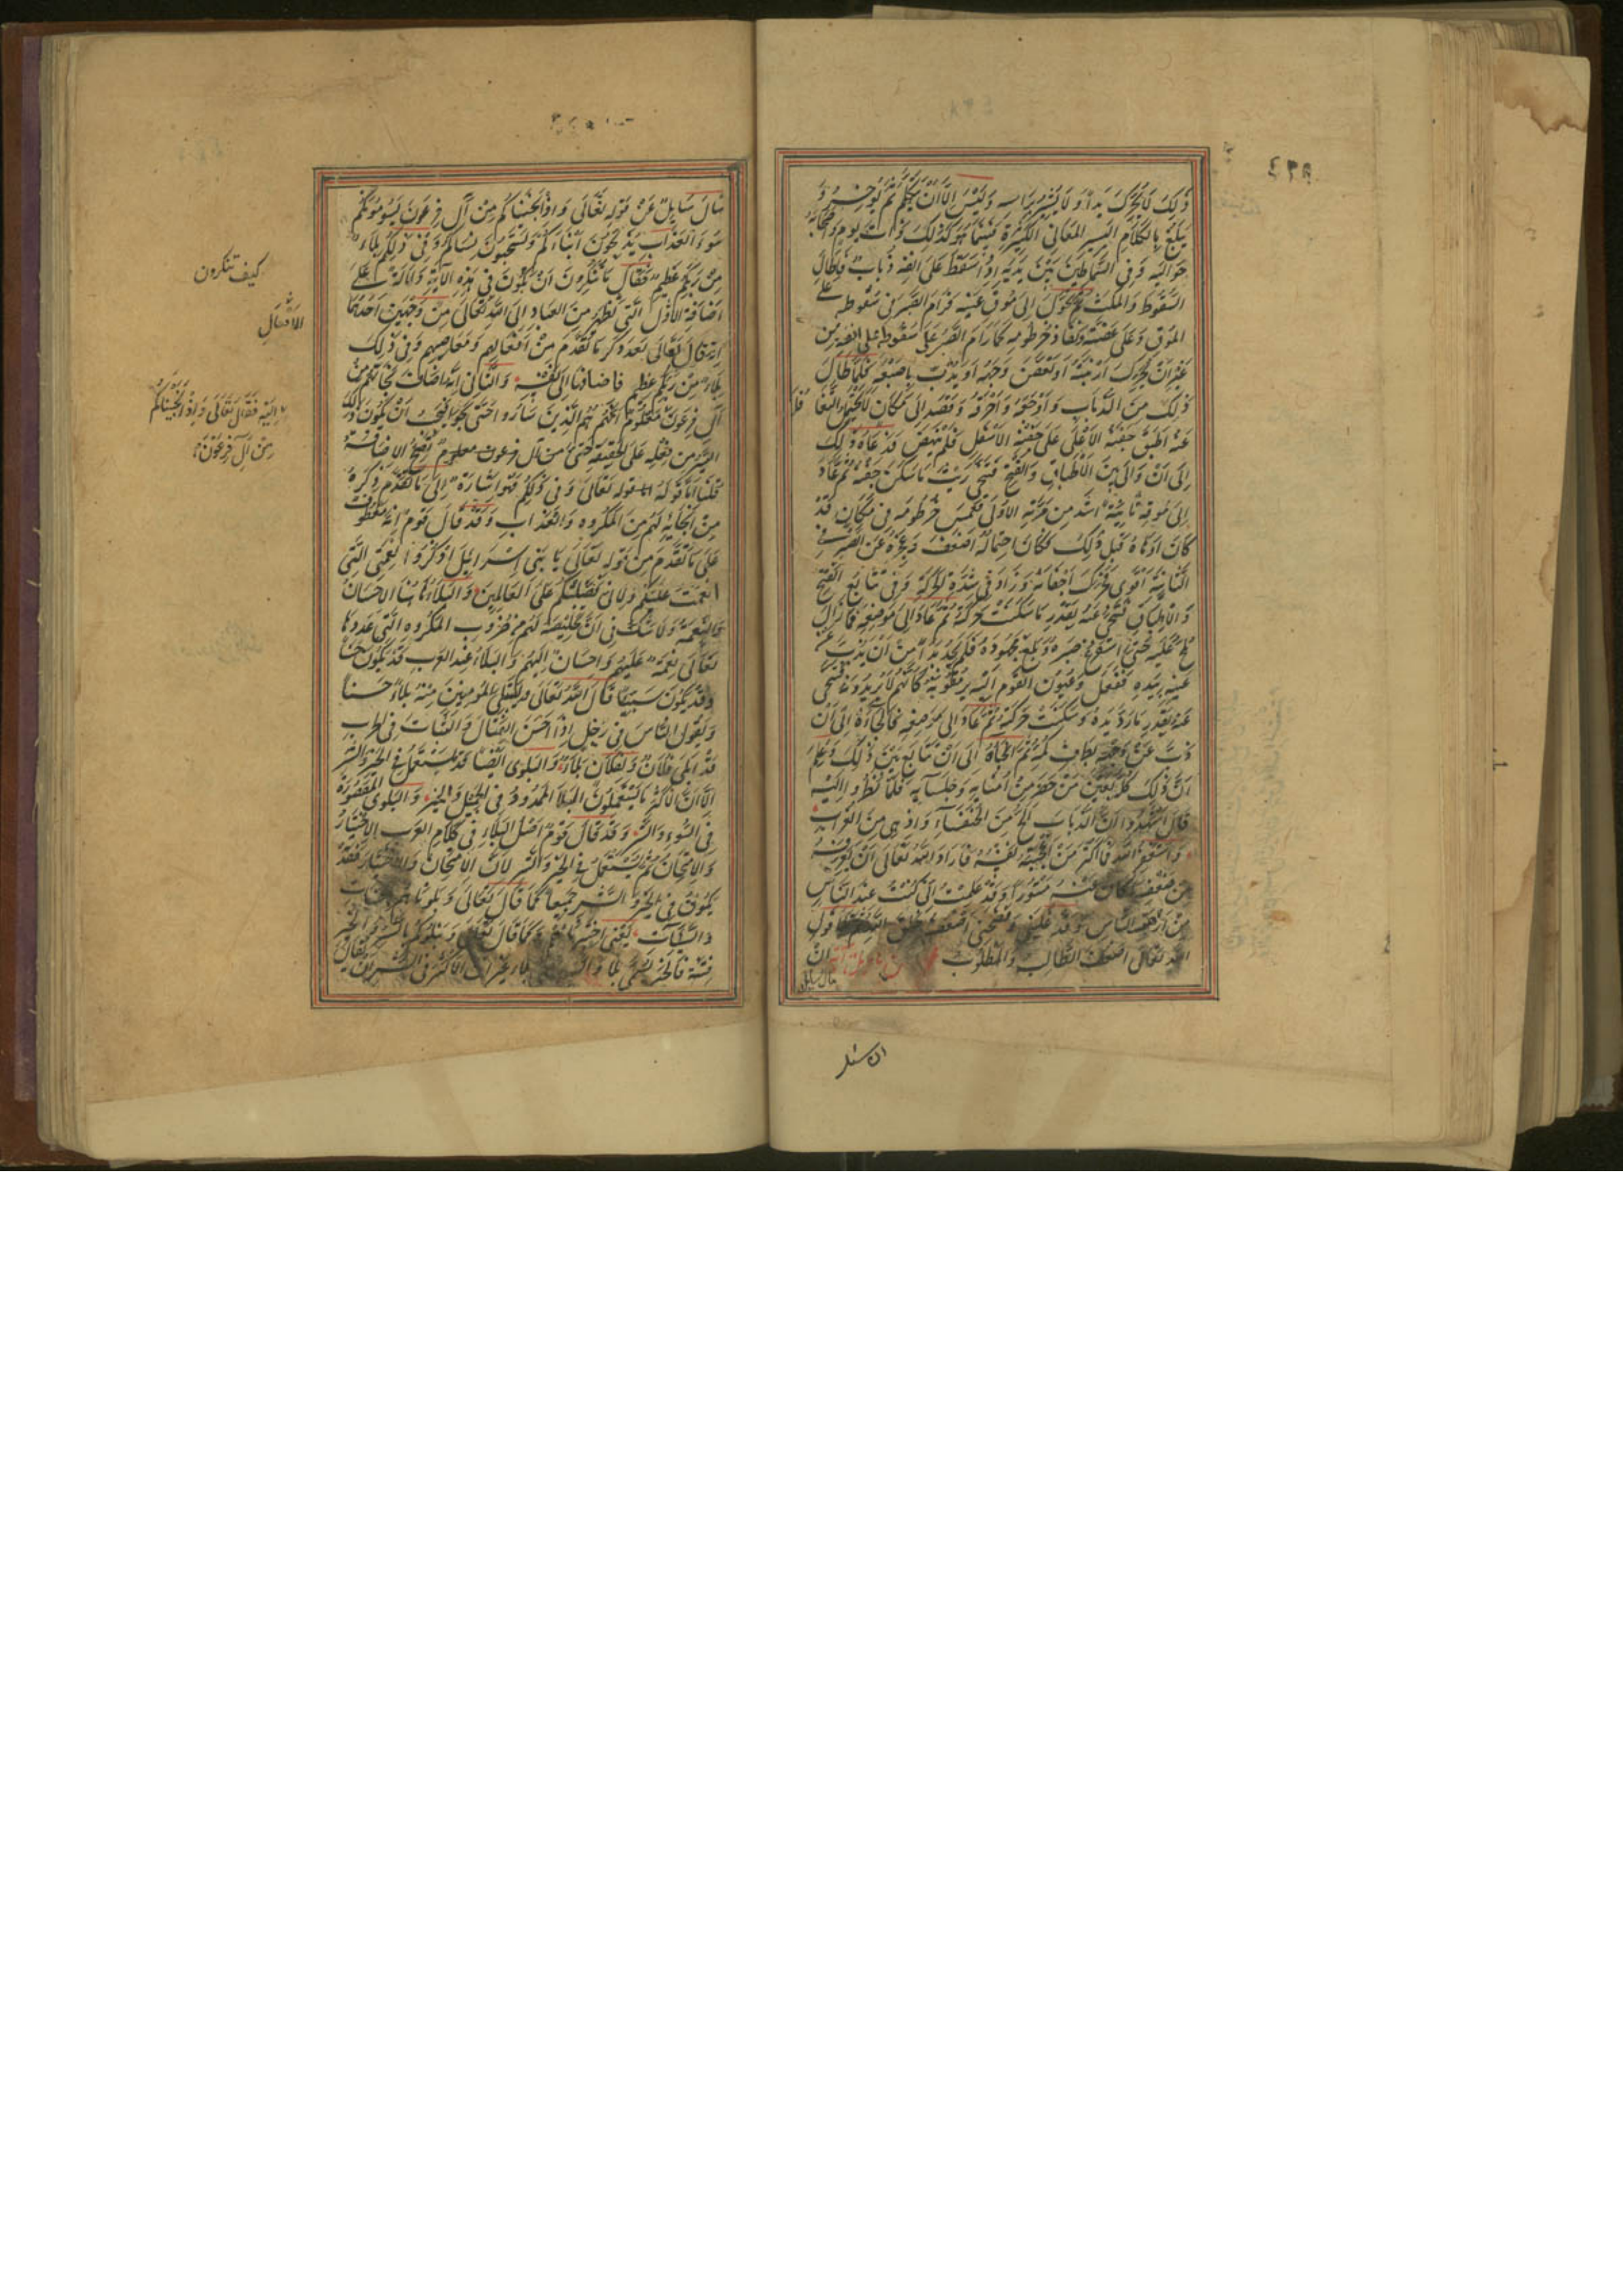 ٤٣٨
ذلك لا يحرك يدا و لا يشير براسه وليس الا ان يتكلم ثم يوجز و
يبلغ بالكلام اليسير المعاني الكثيرة فبينما هو كذلك ذات يوم واصحابه
حواليه وفي السماطين بين يديه اذ سقط على انفه ذباب فاطال
السقوط والمكث ثم تحول الى موق عينه فرام الصبر في سقوطه على
الموق وعلى عضته ونفاذ خرطومه كما رام الصبر على سقوطه على انفه من
غير ان يحرك ارنبته او يغضن وجهه او يذب باصبعه فلما طال
ذلك من الذباب واوجعه واحرقه وقصد الى مكان لا يحتمل التغافل
عنه اطبق جفنه الاعلى على جفنه الاسفل فلم ينهض فدعاه ذلك
الى ان والى بين الاطباق والفتح فتنحى ريث ما سكن جفنه ثم عاد
الى موقه ثانية اشد من مرته الاولى فغمس خرطومه في مكان قد
كان اوهاه قبل ذلك فكان احتماله اضعف وعجزه عن الصبر في
الثانية اقوى فحرك اجفانه وزاد في شدة الحركة وفي تتابع الفتح
والاطباق فتنحى عنه بقدر ما سكنت حركته ثم عاد الى موضعه فما زال
يلح عليه حتى استفرغ صبره وبلغ مجهوده فلم يجد بدا من ان يذب عن
عينه بيده ففعل وعيون القوم اليه يرمقونه كانهم لا يريدونه فتنحى
عنه بقدر ما رد يده وسكنت حركته ثم عاد الى موضعه فالجأه الى ان
ذب عن وجهه بطرف كمه ثم الجأه الى ان تابع بين ذلك وعلم
ان ذلك كله بعين من حضر من امنائه وجلسائه فلما نظروا اليه
قال اشهد ان الذباب الج من الخنفساء وازهى من الغراب
واستغفر الله فما اكثر من اعجبته نفسه فاراد الله تعالى ان يعرفه
من ضعفه ما كان عنه مستورا وقد علمت انى كنت عند الناس
من ارزن الناس وقد غلبني وفضحني اضعف خلق الله ثم تلا قول
الله تعالى ضعف الطالب والمطلوب
ان
سال سايل
ان سئل
سال سايل عن قوله تعالى واذ انجيناكم من آل فرعون يسومونكم
سوء العذاب يذبحون ابناءكم ويستحيون نساءكم وفي ذلكم بلاء
من ربكم عظيم فقال ما تنكرون ان يكون في هذه الآية دلالة على
اضافة الافعال التي تظهر من العباد الى الله تعالى من وجهين احدهما
انه قال تعالى بعد ذكر ما تقدم من افعالهم ومعاصيهم وفي ذلكم
بلاء من ربكم عظيم فاضافها الى نفسه والثاني انه اضاف نجاتهم من
آل فرعون ومعلوم انهم هم الذين ساروا حتى نجوا فيجب ان يكون ذلك
السير من فعله على الحقيقة حتى تصح الاضافة
قلنا اما قوله تعالى وفي ذلكم فهو اشارة الى ما تقدم ذكره
من انجائه لهم من المكروه والعذاب وقد قال قوم انه معطوف
على ما تقدم من قوله تعالى يا بنى اسرائيل اذكروا نعمتي التي
انعمت عليكم وانى فضلتكم على العالمين والبلاء هاهنا الاحسان
والنعمة ولا شك في ان تخليصه لهم من ضروب المكروه التي عددها
تعالى نعمة عليهم واحسان اليهم والبلاء عند العرب قد يكون حسنا
وقد يكون سيئا قال الله تعالى وليبلى المؤمنين منه بلاء حسنا
ويقول الناس في رجل اذا احسن القتال والثبات في الحرب
قد ابلى فلان ولفلان بلاء والبلوى ايضا قد تستعمل في الخير والشر
الا ان اكثر ما يستعملون البلاء الممدود في الجميل والخير والبلوى المقصورة
في السوء والشر وقد قال قوم اصل البلاء في كلام العرب الاختبار
والامتحان ثم يستعمل في الخير والشر لان الامتحان والاختبار قد
يكون في الخير والشر جميعا كما قال تعالى وبلوناهم بالحسنات
والسيئات يعني اختبرناهم وكما قال تعالى ونبلوكم بالشر والخير
فتنة فالخير يسمى بلاء والشر بلاء غير ان الاكثر في الشر ان يقال
كيف تنكرون
الافعال
اليه فقال تعالى واذ انجيناكم
من آل فرعون